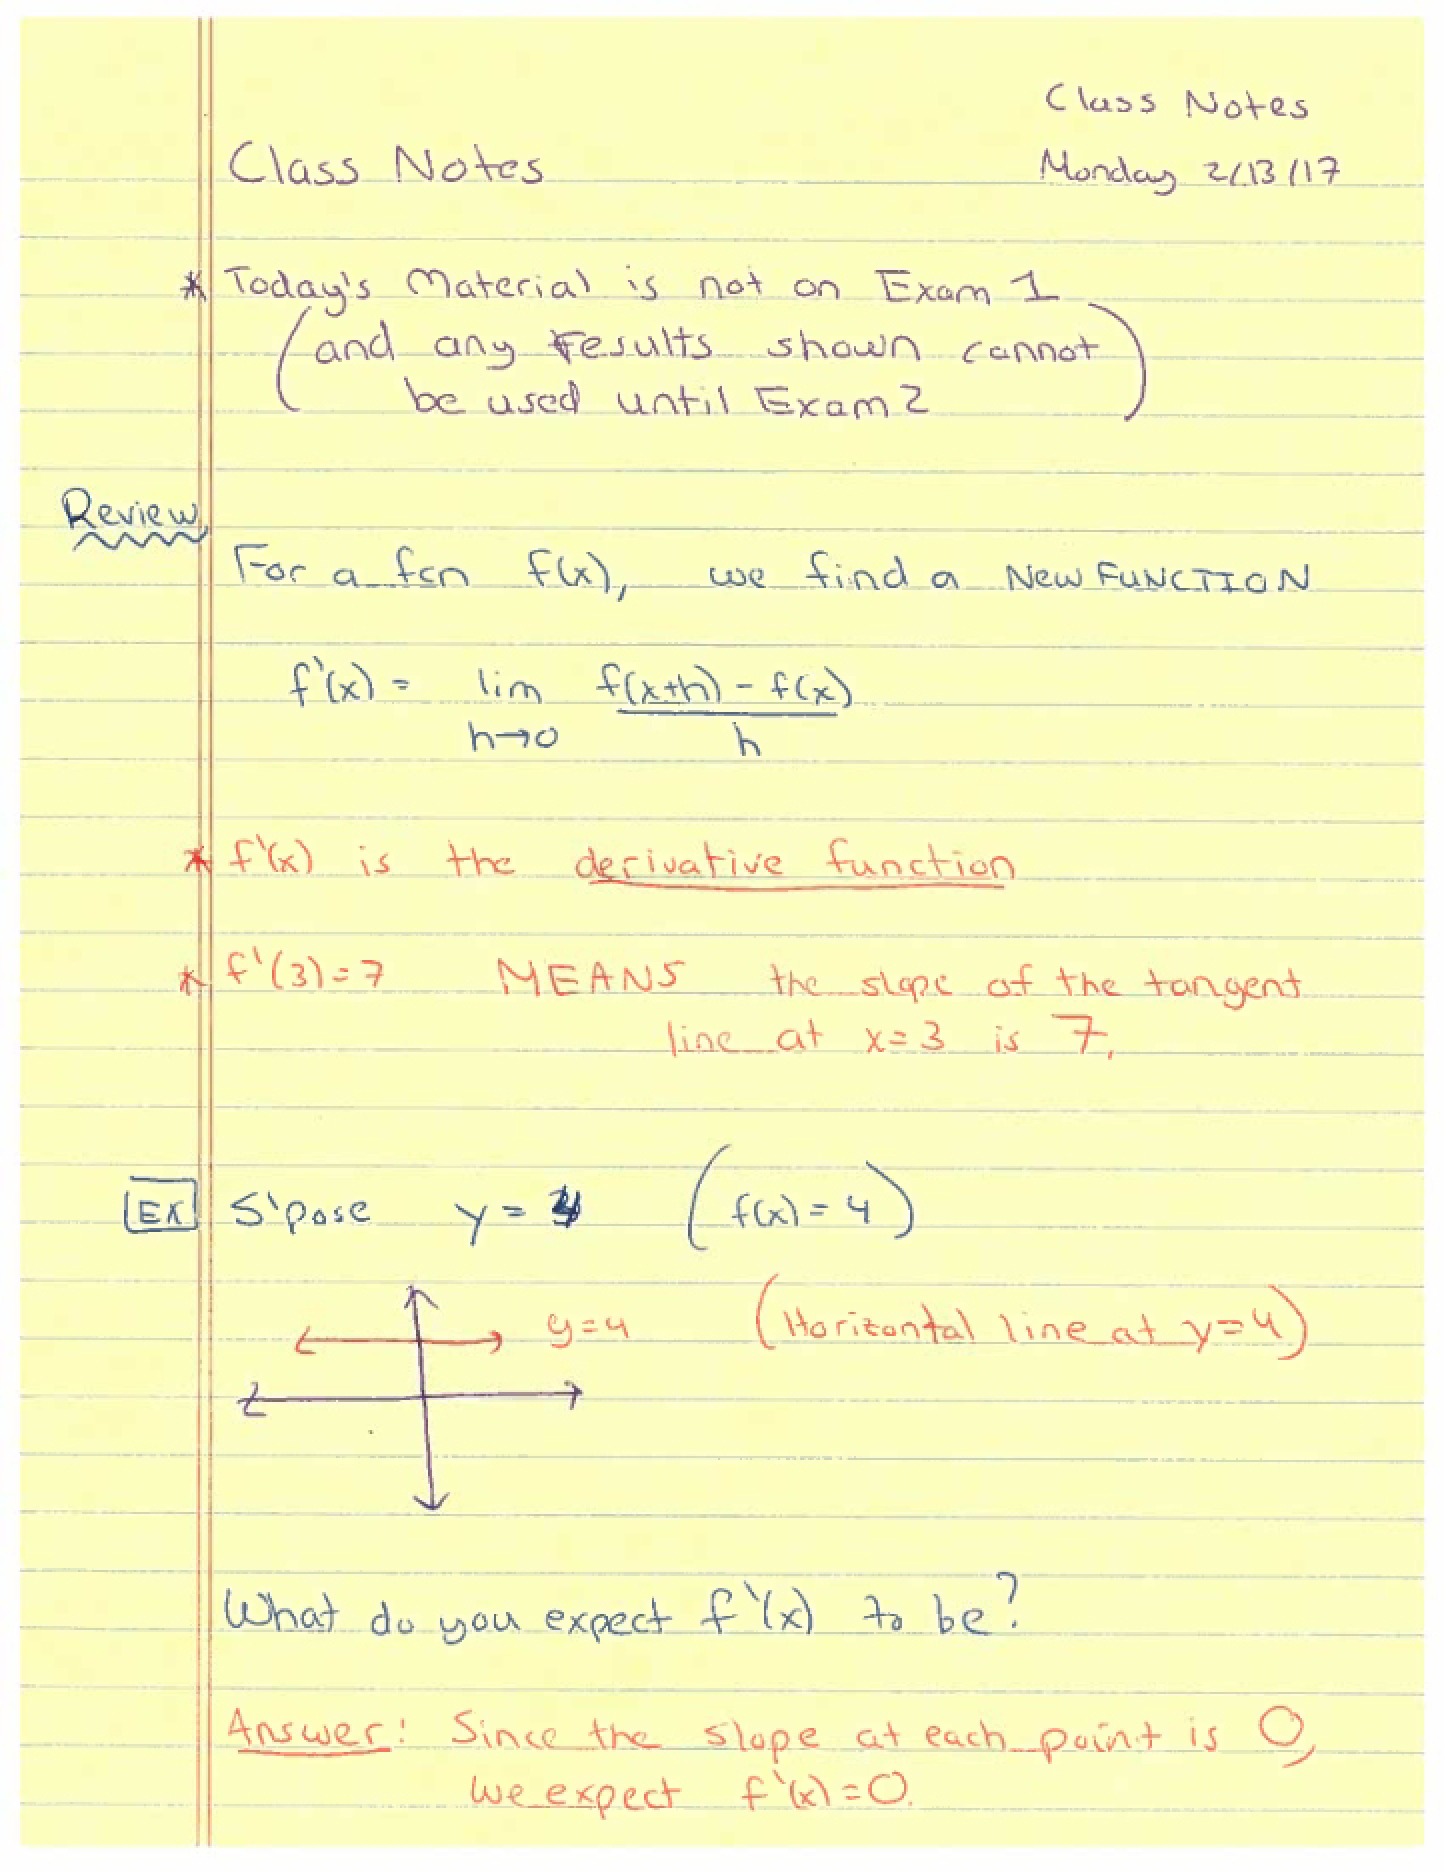 Class Notes
Monday 2/13/17
Class Notes
* Today's Material is not on Exam 1
(and any results shown cannot
be used until Exam 2)
Review
For a fcn f(x), we find a NEW FUNCTION
f'(x) = lim f(x+h) - f(x)
h→0 h
* f'(x) is the derivative function
* f'(3)=7 MEANS the slope of the tangent
line at x=3 is 7.
EX S'pose y = 4 (f(x) = 4)
y=4 (Horizontal line at y=4)
What do you expect f'(x) to be?
Answer: Since the slope at each point is 0,
we expect f'(x)=0.